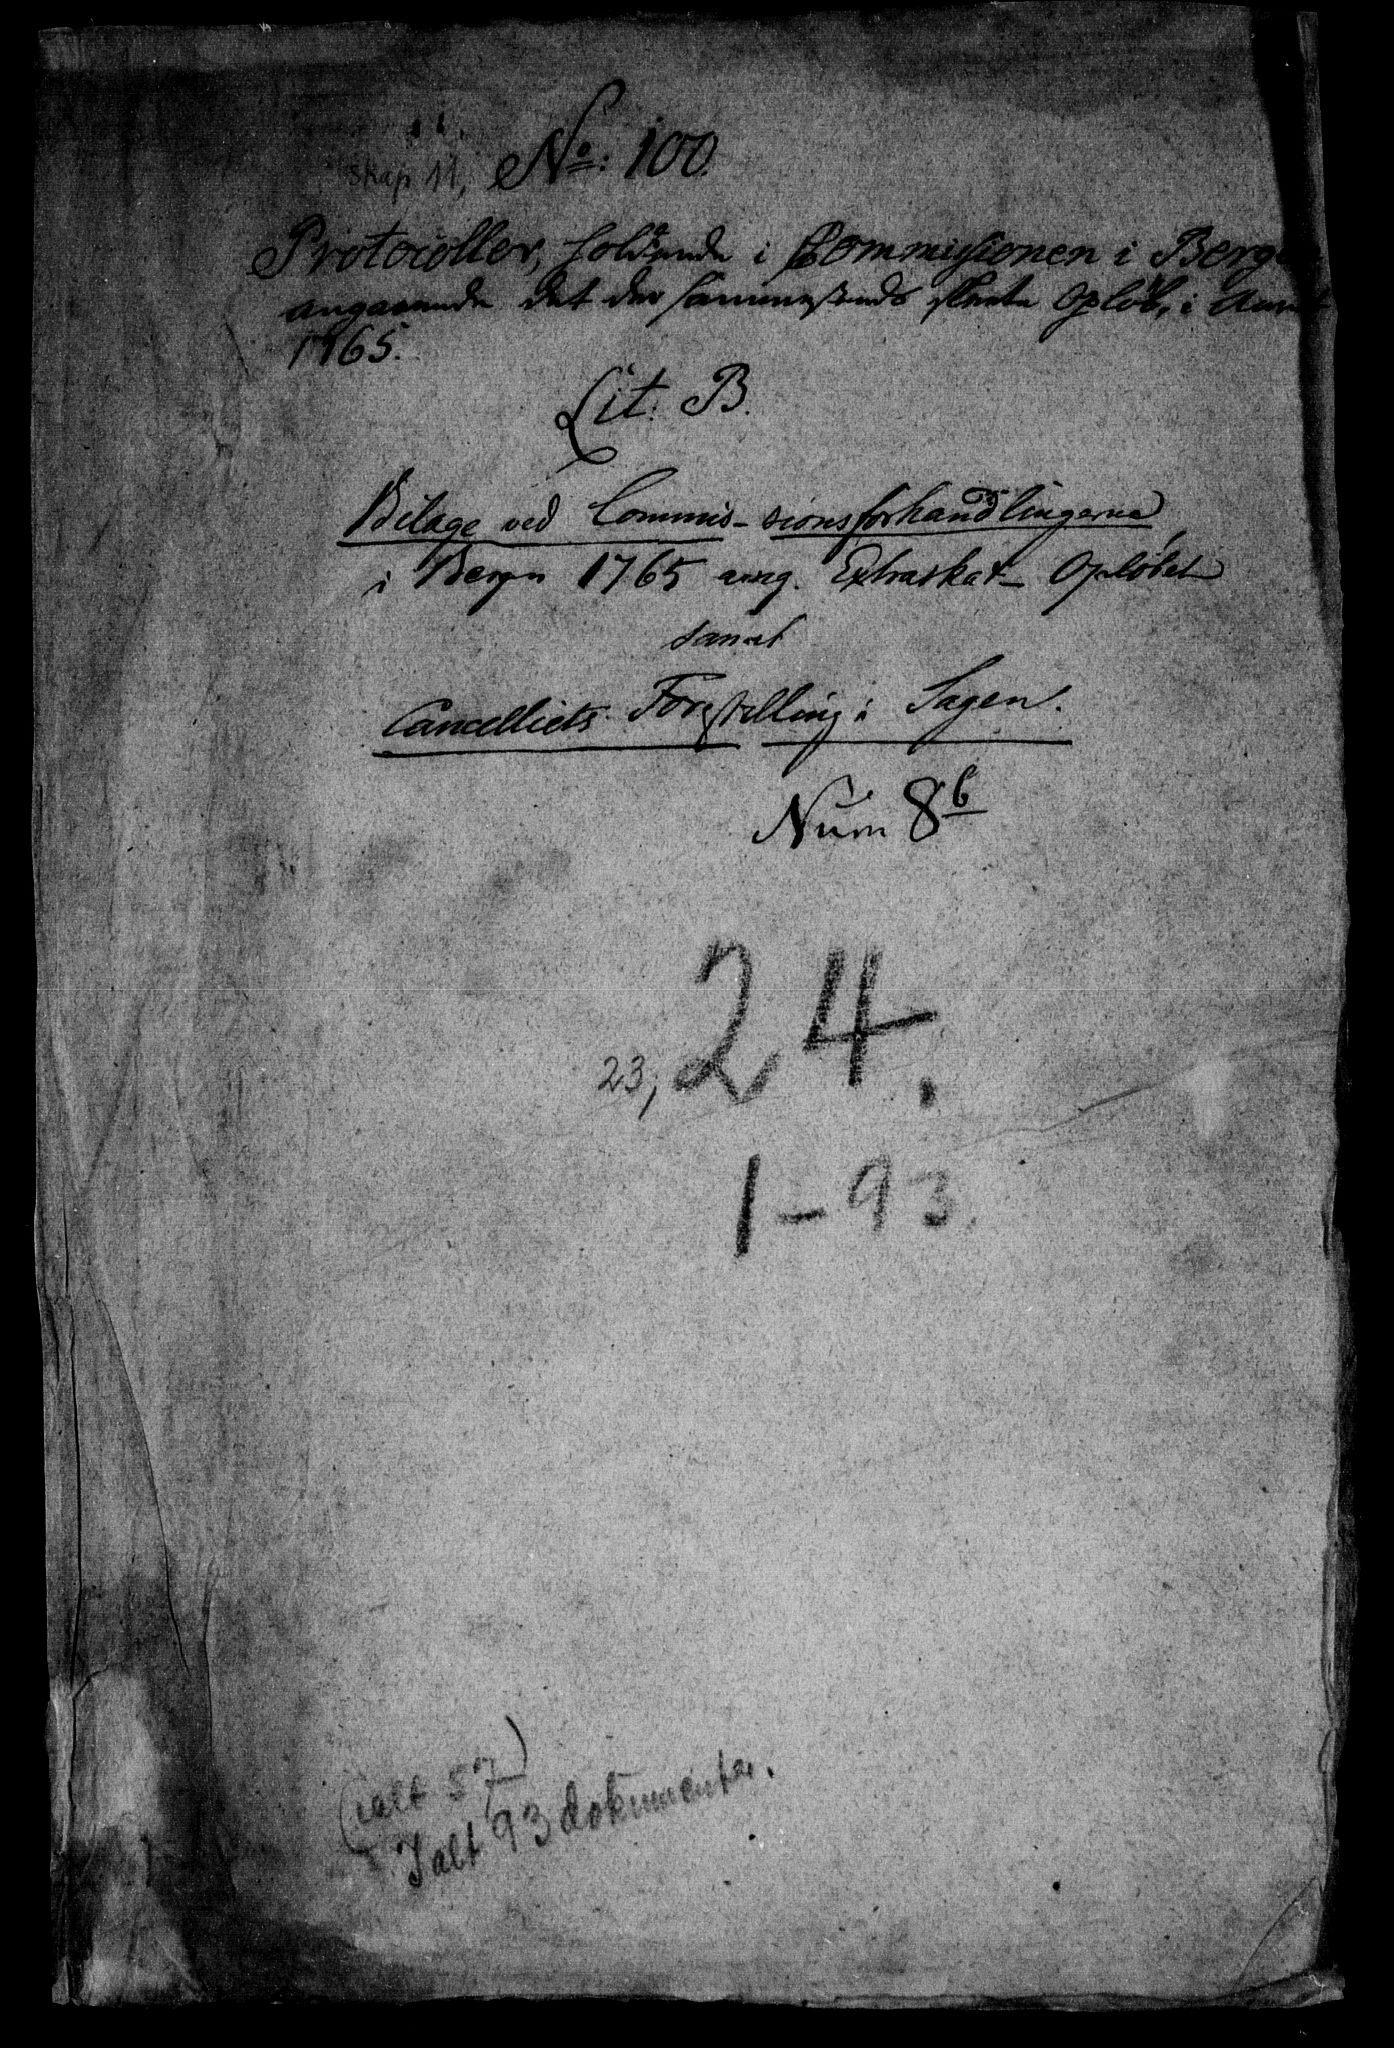 skap 11, No: 100.
Protocoller, holdende i Commissionen i Bergen
angaaende det der sammesteds skeete Opløb, i Aaret
1765.
Lit: B.
Bilage ved Commis-sionsforhandlingerne
i Bergen 1765 ang. Extraskat-Opløbet
samt
Cancelliets Forestilling i Sagen.
Num 8b
23, 24.
1-93.
(ialt 57)
Ialt 93 dokumenter.